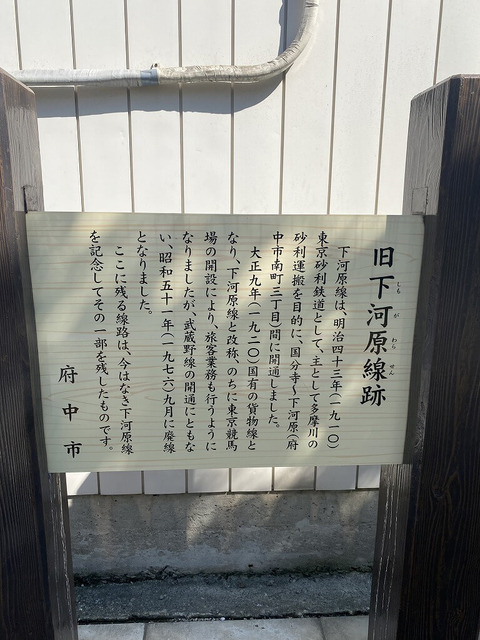 旧下河原線跡
しもがわらせん
下河原線は、明治四十三年(一九一〇)
東京砂利鉄道として、主として多摩川の
砂利運搬を目的に、国分寺~下河原(府
中市南町三丁目)間に開通しました。
大正九年(一九二〇)国有の貨物線と
なり、下河原線と改称、のちに東京競馬
場の開設により、旅客業務も行うように
なりましたが、武蔵野線の開通にともな
い、昭和五十一年(一九七六)九月に廃線
となりました。
ここに残る線路は、今はなき下河原線
を記念してその一部を残したものです。
府中市